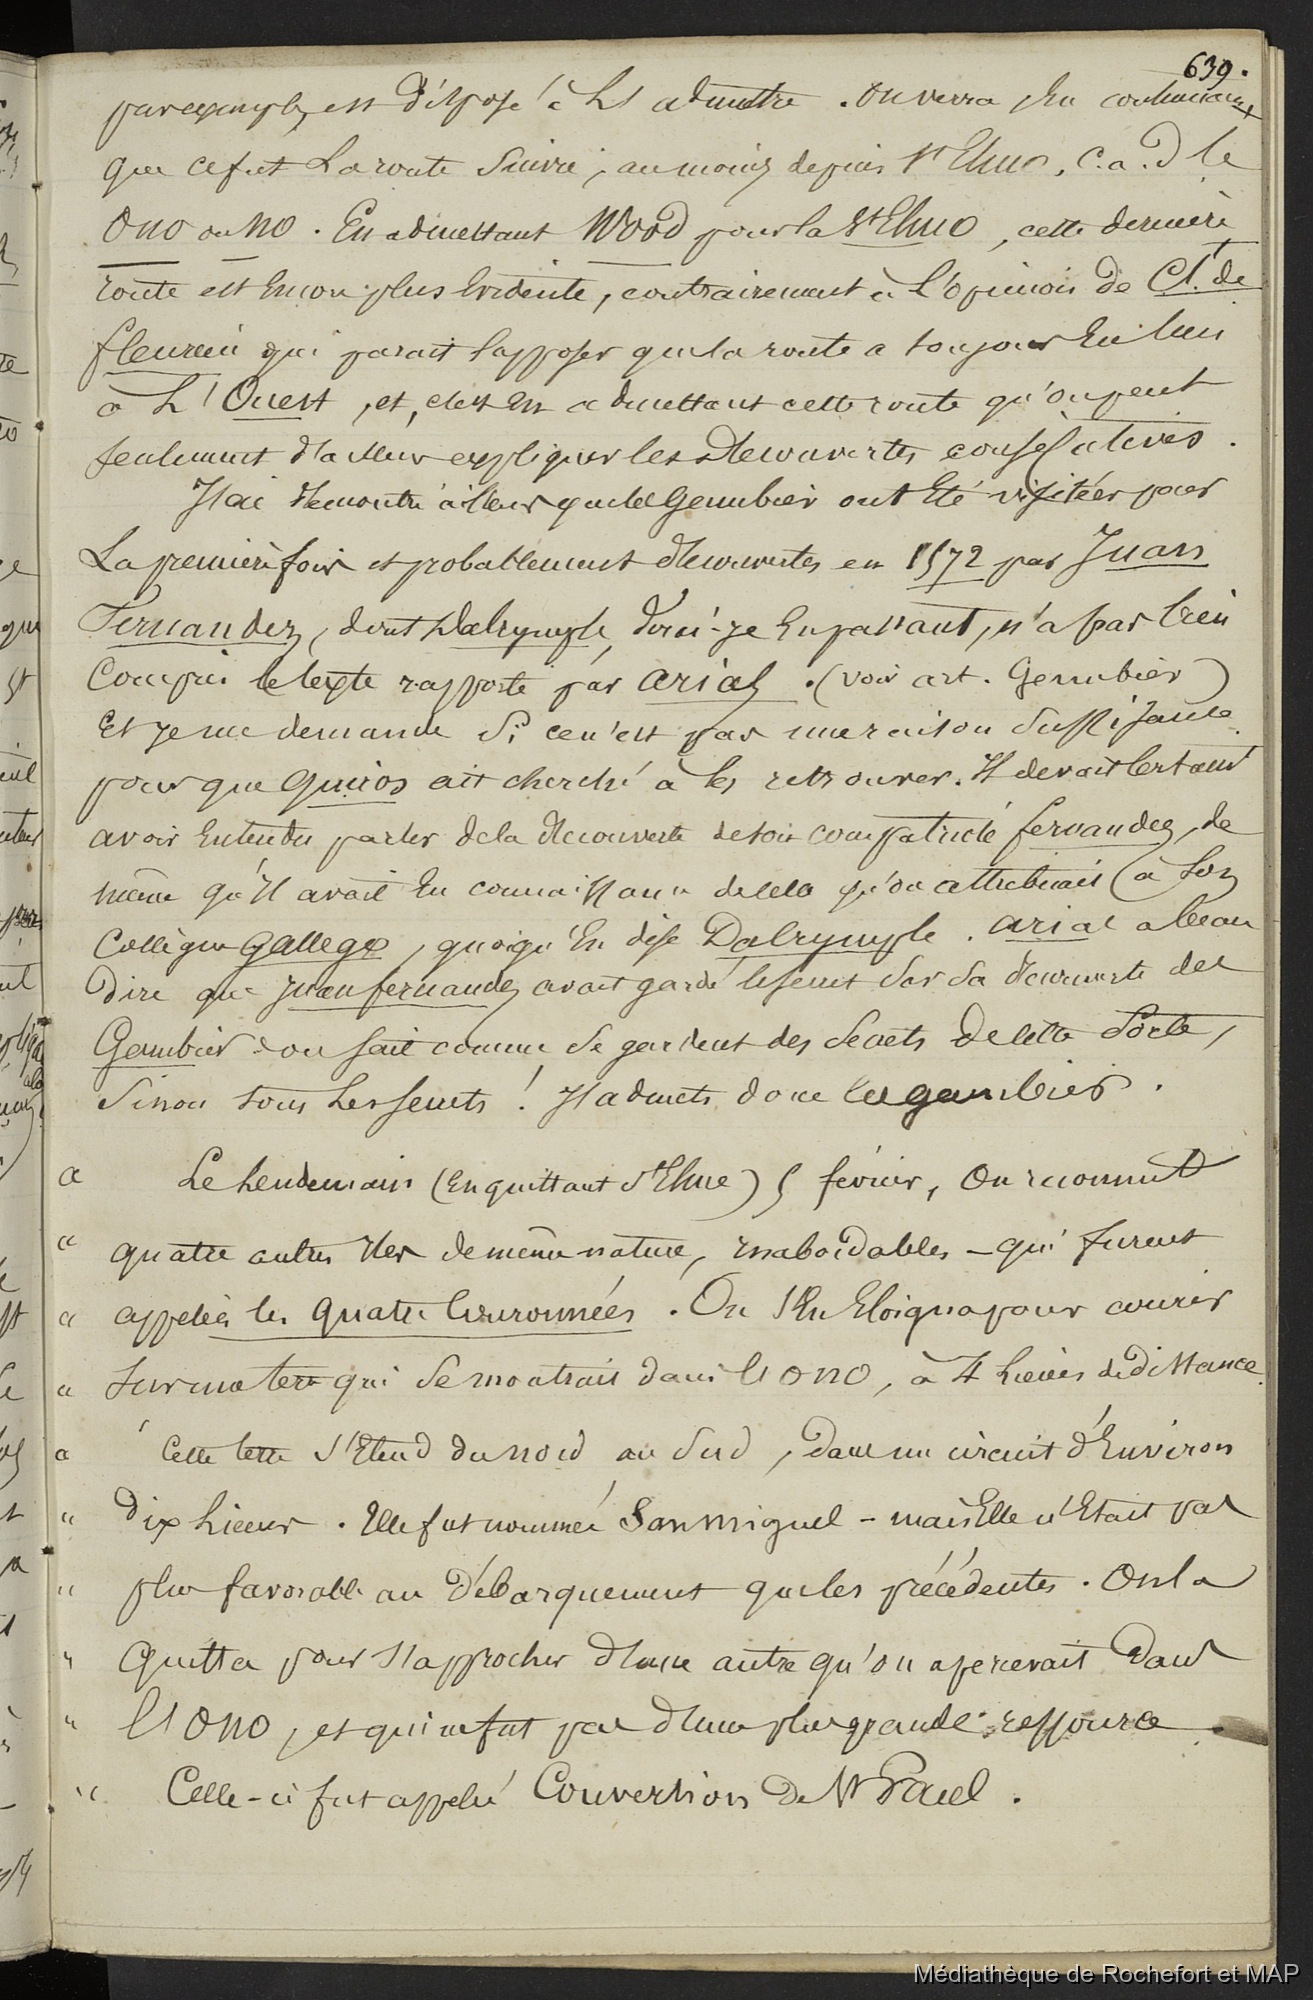 639.
par exemple, est disposé à les admettre. On verra, en continuant
que ce fut la route suivie, au moins depuis St Elmo, c.a.d le
ONO ou NO. En admettant Wood pour la St Elmo, cette dernière
route est encore plus évidente, contrairement à l'opinion de Ct. de
fleurieu qui parait supposer que la route a toujours eu lieu
à l'Ouest, et, c'est en admettant cette route qu'on peut
seulement d'ailleurs expliquer les découvertes consécutives.
J'ai démontré ailleurs que les Gambier ont été visitées pour
La première fois et probablement découvertes en 1572 par Juan
Fernandez, dont Dalrymple, dirai-je en passant, n'a pas bien
Compris le texte rapporté par Arias. (voir art. Gambier)
Et je me demande si ce n'est pas une raison suffisante
pour que Quiros ait cherché à les retrouver. Il devait certain
avoir entendu parler de la découverte de son compatriote fernandez, de
même qu'il avait eu connaissance de celle qu'on attribuait à son
Collègue Gallego, quoiqu'en dise Dalrymple. Arias a beau
dire que Juan fernandez avait gardé le secret sur sa découverte des
Gambier: on sait comme se gardent des secrets de cette sorte,
Sinon tous les secrets! J'admets donc les gambier.
" Le lendemain (en quittant St Elme) 5 février, On reconnut
" quatre autres îles de même nature, inabordables - qui furent
" appelées les quatre Couronnées. On s'en éloigna pour courir
" sur une terre qui se montrait dans l'ONO, à 4 lieues de distance.
" Cette terre s'étend du nord au Sud, dans un circuit d'environ
" dix lieues. Elle fut nommée San Miguel - mais Elle n'était pas
" plus favorable au débarquement que les précédentes. On la
" Quitta pour s'approcher d'une autre qu'on apercevait dans
" l'ONO, et qui ne fut pas d'une plus grande ressource.
" Celle-ci fut appelée Conversion de St Paul.
Médiathèque de Rochefort et MAP